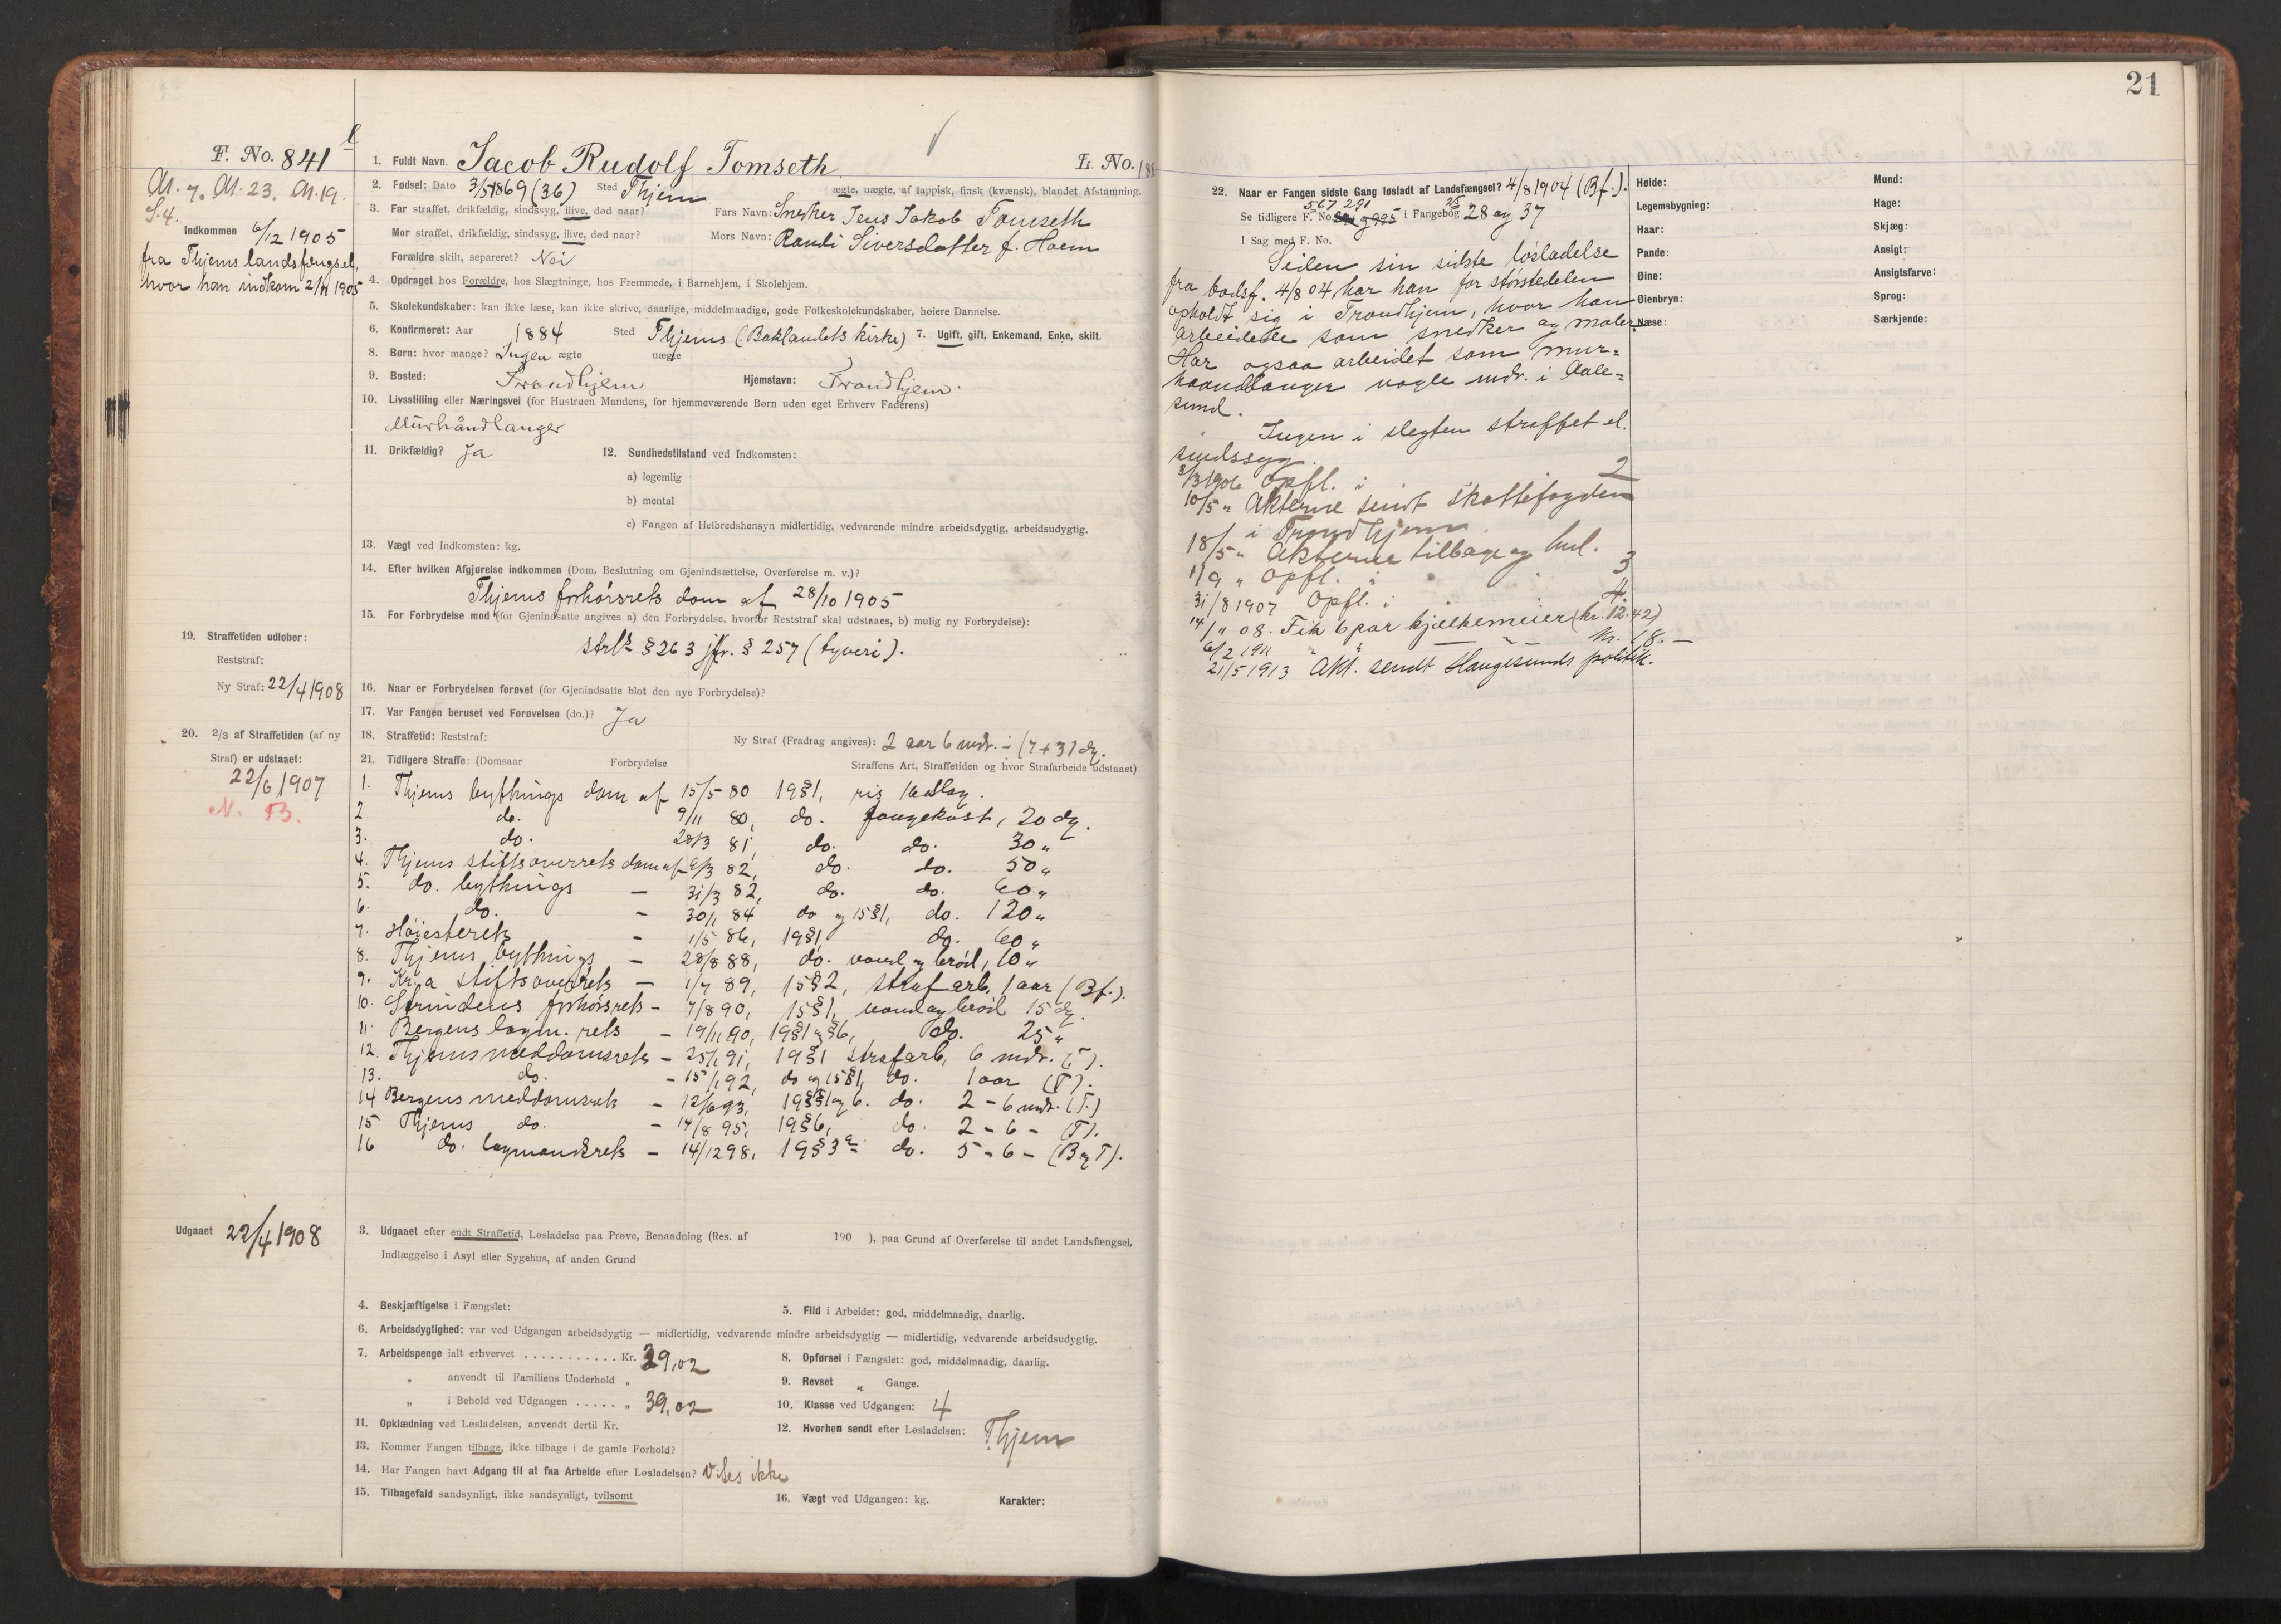 21
F. No. 841
M. 7. M. 23. M. 19.
S. 4.
Indkommen 6/12 1905
fra Thjems landsfængsel,
hvor han indkom 2/11 1905
1. Fuldt Navn. Jacob Rudolf Tomseth. L. No.
2. Fødsel: Dato 3/5 1869 (36) Sted Thjem ægte, uægte, af lappisk, finsk (kvænsk), blandet Afstamning.
3. Far straffet, drikfældig, sindssyg, ilive, død naar? Fars Navn: Snedker Jens Jakob Tomseth
Mor straffet, drikfældig, sindssyg, ilive, død naar? Mors Navn: Randi Siversdatter f. Hoem
Forældre skilt, separeret? Nei
4. Opdraget hos Forældre, hos Slægtninge, hos Fremmede, i Barnehjem, i Skolehjem.
5. Skolekundskaber: kan ikke læse, kan ikke skrive, daarlige, middelmaadige, gode Folkeskolekundskaber, høiere Dannelse.
6. Konfirmeret: Aar 1884 Sted Thjems (Baklandets kirke) 7. Ugift, gift, Enkemand, Enke, skilt.
8. Børn: hvor mange? Ingen ægte uægte
9. Bosted: Trondhjem Hjemstavn: Trondhjem.
10. Livsstilling eller Næringsvei (for Hustruen Mandens, for hjemmeværende Børn uden eget Erhverv Faderens)
Murhåndlanger
11. Drikfældig? Ja 12. Sundhedstilstand ved Indkomsten:
a) legemlig
b) mental
c) Fangen af Helbredshensyn midlertidig, vedvarende mindre arbeidsdygtig, arbeidsudygtig.
13. Vægt ved Indkomsten: kg.
14. Efter hvilken Afgjørelse indkommen (Dom, Beslutning om Gjenindsættelse, Overførelse m. v.)?
Thjems forhörsrets dom af 28/10 1905
15. For Forbrydelse mod (for Gjenindsatte angives a) den Forbrydelse, hvorfor Reststraf skal udstaaes, b) mulig ny Forbrydelse):
strl. § 263 jfr. § 257 (tyveri).
19. Straffetiden udløber:
Reststraf:
Ny Straf: 22/4 1908
16. Naar er Forbrydelsen forøvet (for Gjenindsatte blot den nye Forbrydelse)?
17. Var Fangen beruset ved Forøvelsen (do.)? Ja
18. Straffetid: Reststraf: Ny Straf (Fradrag angives): 2 aar 6 mdr. ÷ (7 + 3) dg.
20. 2/3 af Straffetiden (af ny
Straf) er udstaaet:
22/6 1907
N. B.
21. Tidligere Straffe: (Domsaar Forbrydelse Straffens Art, Straffetiden og hvor Strafarbeide udstaaet)
1. Thjems bythings dom af 15/5 80 19 § 1, ris 16 slag.
2. do. 9/11 80, do. fangekost, 20 dg.
3. do. 28/3 81, do. do. 30 "
4. Thjems stiftsoverrets dom af 6/3 82, do. do. 50 "
5. do. bythings – 31/3 82, do. do. 60 "
6. do. – 30/1 84 do og 15 § 1, do. 120 "
7. Høiesterets – 1/5 86, 19 § 1, do. 60 "
8. Thjems bythings – 28/8 88, do. vand og bröd, 10 "
9. Kr.a stiftsoverrets – 1/7 89, 15 § 2, strafarb. 1 aar (Bf.).
10. Strindens forhörsrets – 7/8 90, 15 § 1, vand og bröd 15 dg.
11. Bergens lagm. rets – 19/11 90, 19 § 1 og § 6, do. 25 "
12. Thjems meddomsrets – 25/1 91, 19 § 1 strafarb, 6 mdr. (T.).
13. do. – 15/1 92, do og 15 § 1, do. 1 aar (T).
14 Bergens meddomsrets – 12/6 93, 19 §§ 1 og 6. do. 2 – 6 mdr. (T.)
15 Thjems do. – 14/8 95, 19 § 6, do. 2 – 6 – (T).
16 do. lagmandsrets – 14/12 98, 19 § 3 a do. 5 – 6 – (B og T).
Udgaaet 22/4 1908
3. Udgaaet efter endt Straffetid, Løsladelse paa Prøve, Benaadning (Res. af 190 ), paa Grund af Overførelse til andet Landsfængsel,
Indlæggelse i Asyl eller Sygehus, af anden Grund
4. Beskjæftigelse i Fængslet: 5. Flid i Arbeidet: god, middelmaadig, daarlig.
6. Arbeidsdygtighed: var ved Udgangen arbeidsdygtig — midlertidig, vedvarende mindre arbeidsdygtig — midlertidig, vedvarende arbeidsudygtig.
7. Arbeidspenge ialt erhvervet ........... Kr. 39,02 8. Opførsel i Fængslet: god, middelmaadig, daarlig.
" anvendt til Familiens Underhold " 9. Revset " Gange.
" i Behold ved Udgangen ..... " 39,02 10. Klasse ved Udgangen: 4
11. Opklædning ved Løsladelsen, anvendt dertil Kr. 12. Hvorhen sendt efter Løsladelsen: Thjem
13. Kommer Fangen tilbage, ikke tilbage i de gamle Forhold?
14. Har Fangen havt Adgang til at faa Arbeide efter Løsladelsen? Vides ikke
15. Tilbagefald sandsynligt, ikke sandsynligt, tvilsomt 16. Vægt ved Udgangen: kg. Karakter:
22. Naar er Fangen sidste Gang løsladt af Landsfængsel? 4/8 1904 (Bf.).
567 291 25
Se tidligere F. No. i Fangebog 28 og 37
I Sag med F. No.
Siden sin sidste løsladelse
fra bodsf. 4/8 04 har han for störstedelen
opholdt sig i Trondhjem, hvor han
arbeidede som snedker og maler.
Har ogsaa arbeidet som mur-
haandlanger nogle mdr. i Aale-
sund.
Ingen i slegten straffet el.
sindssyg.
2/3 1906 Opfl. i 2
10/5 " Akterne sendt skattefogden
i Trondhjem
18/5 " Akterne tilbage og hul.
1/9 " Opfl. i 3
31/8 1907 Opfl. i 4.
14/ " 08. Fik 6 par kjælkemeier (kr. 12.42)
6/2 1911 " " — kr. 18. —
21/5 1913 Akt. sendt Haugesunds politik.
Høide: Mund:
Legemsbygning: Hage:
Haar: Skjæg:
Pande: Ansigt:
Øine: Ansigtsfarve:
Øienbryn: Sprog:
Næse: Særkjende: